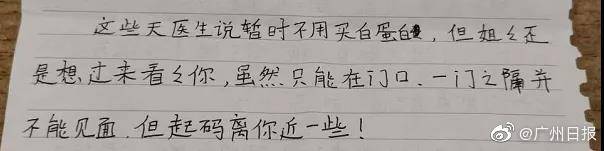 这些天医生说暂时不用买白蛋白，但姐々还
是想过来看々你，虽然只能在门口．一门之隔并
不能见面．但起码离你近一些！
@广州日报